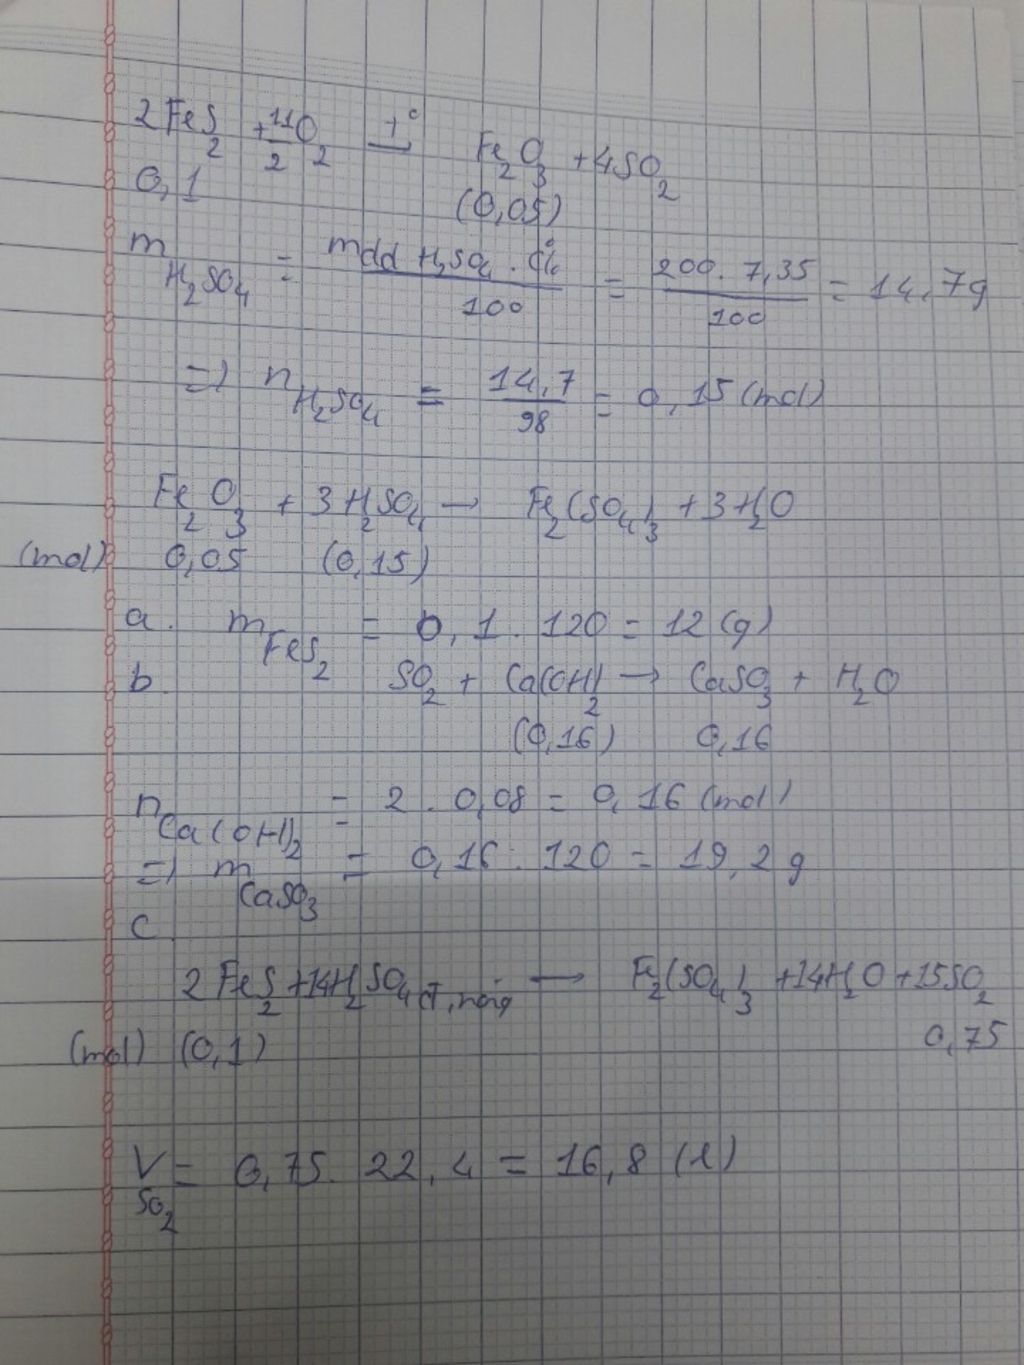 2FeS₂ + 11/2 O₂ —t°→ Fe₂O₃ + 4SO₂
0,1 (0,05)
m H₂SO₄ = mdd H₂SO₄ . C% / 100 = 200 . 7,35 / 100 = 14,7g
=> n H₂SO₄ = 14,7 / 98 = 0,15 (mol)
Fe₂O₃ + 3H₂SO₄ → Fe₂(SO₄)₃ + 3H₂O
(mol) 0,05 (0,15)
a. m FeS₂ = 0,1 . 120 = 12 (g)
b. SO₂ + Ca(OH)₂ → CaSO₃ + H₂O
(0,16) 0,16
n Ca(OH)₂ = 2 . 0,08 = 0,16 (mol)
=> m CaSO₃ = 0,16 . 120 = 19,2 g
c.
2FeS₂ + 14H₂SO₄ đ, nóng → Fe₂(SO₄)₃ + 14H₂O + 15SO₂
(mol) (0,1) 0,75
V SO₂ = 0,75 . 22,4 = 16,8 (l)